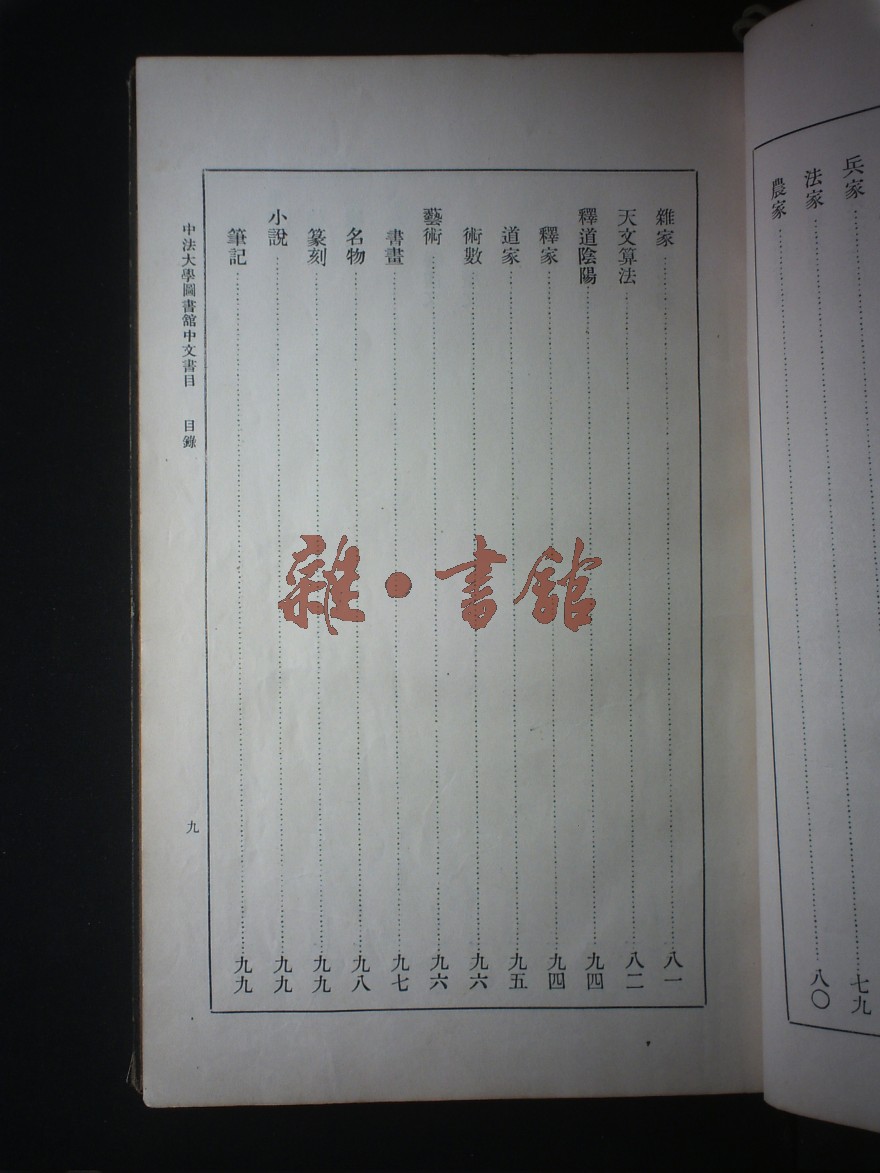 兵家⋯⋯七九
法家⋯⋯八〇
農家
雜家⋯⋯八一
天文算法⋯⋯八二
釋道陰陽⋯⋯九四
釋家⋯⋯九四
道家⋯⋯九五
術數⋯⋯九六
藝術⋯⋯九六
書畫⋯⋯九七
名物⋯⋯九八
篆刻⋯⋯九九
小說⋯⋯九九
筆記⋯⋯九九
中法大學圖書館中文書目 目錄 九
雜·書館